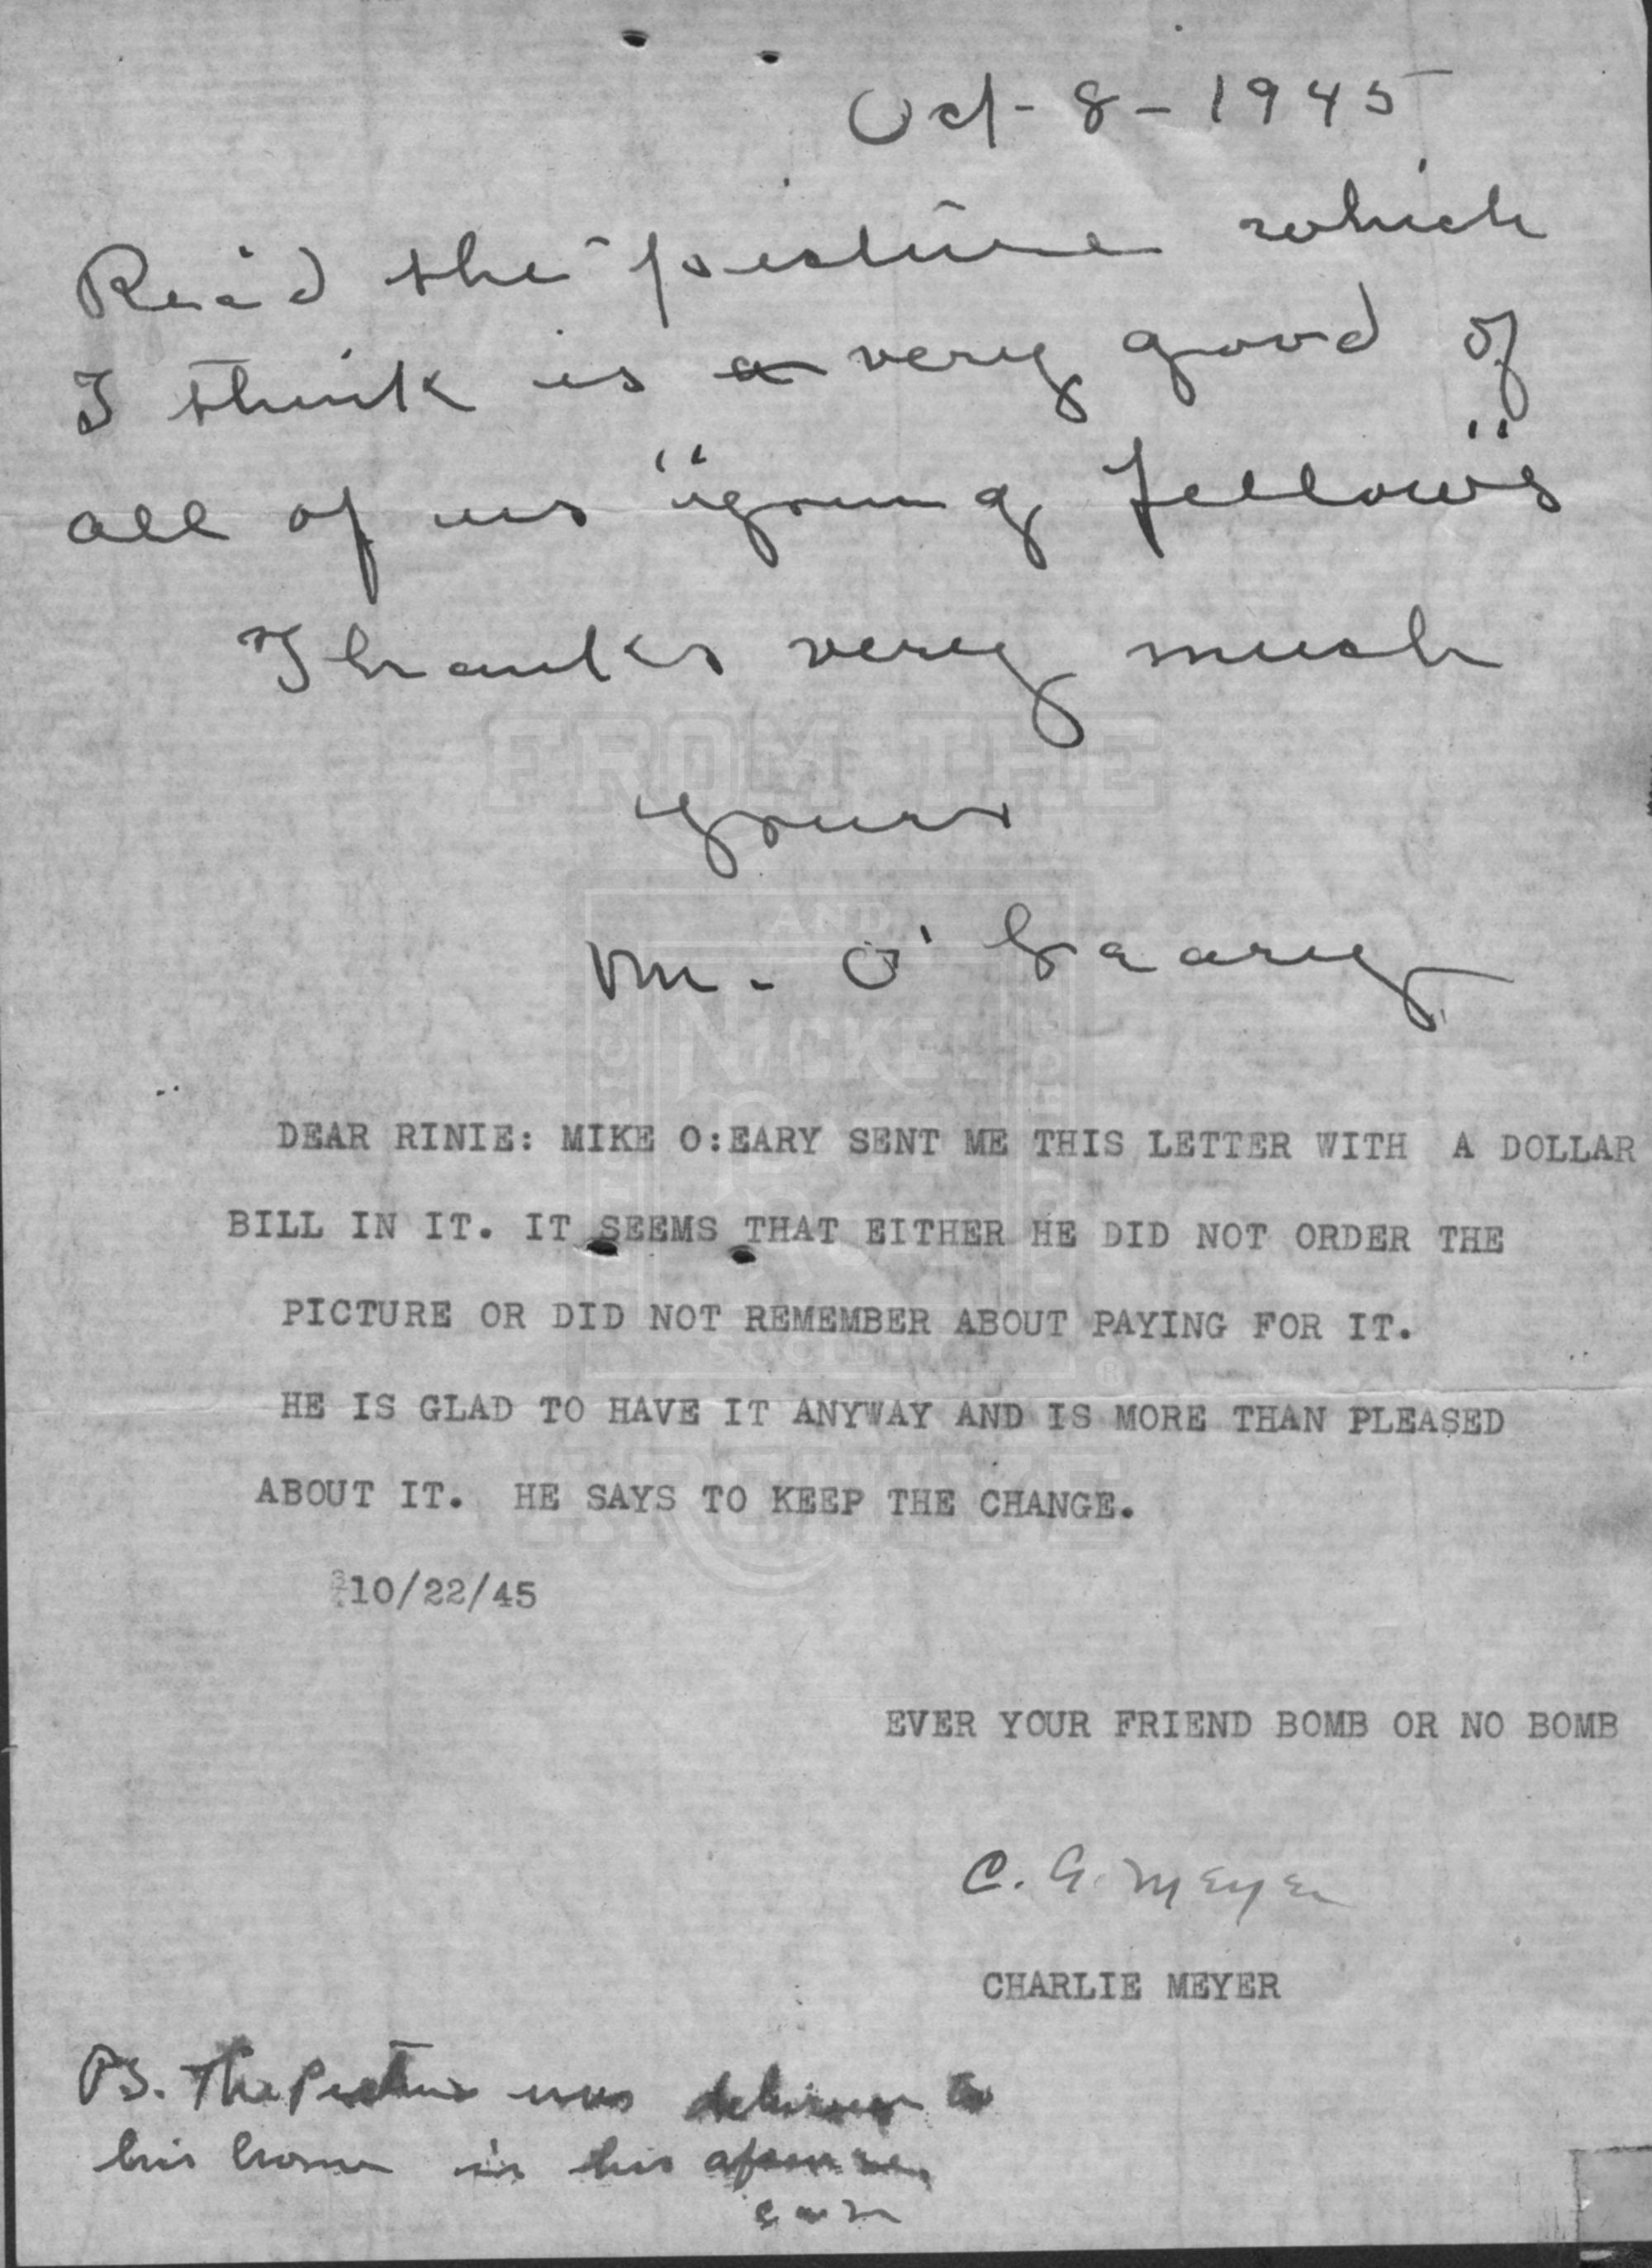 Oct - 8 - 1945
Rec'd the picture which
I think is a very good of
all of us "young fellows"
Thanks very much
Yours
M. O'Geary
DEAR RINIE: MIKE O:EARY SENT ME THIS LETTER WITH A DOLLAR
BILL IN IT. IT SEEMS THAT EITHER HE DID NOT ORDER THE
PICTURE OR DID NOT REMEMBER ABOUT PAYING FOR IT.
HE IS GLAD TO HAVE IT ANYWAY AND IS MORE THAN PLEASED
ABOUT IT. HE SAYS TO KEEP THE CHANGE.
10/22/45
EVER YOUR FRIEND BOMB OR NO BOMB
C. A. MEYER
CHARLIE MEYER
PS. The Picture was deliverer to
his home in his absence.
cam
FROM THE
AND
NICKEL
SOCIETY
ARCHIVE